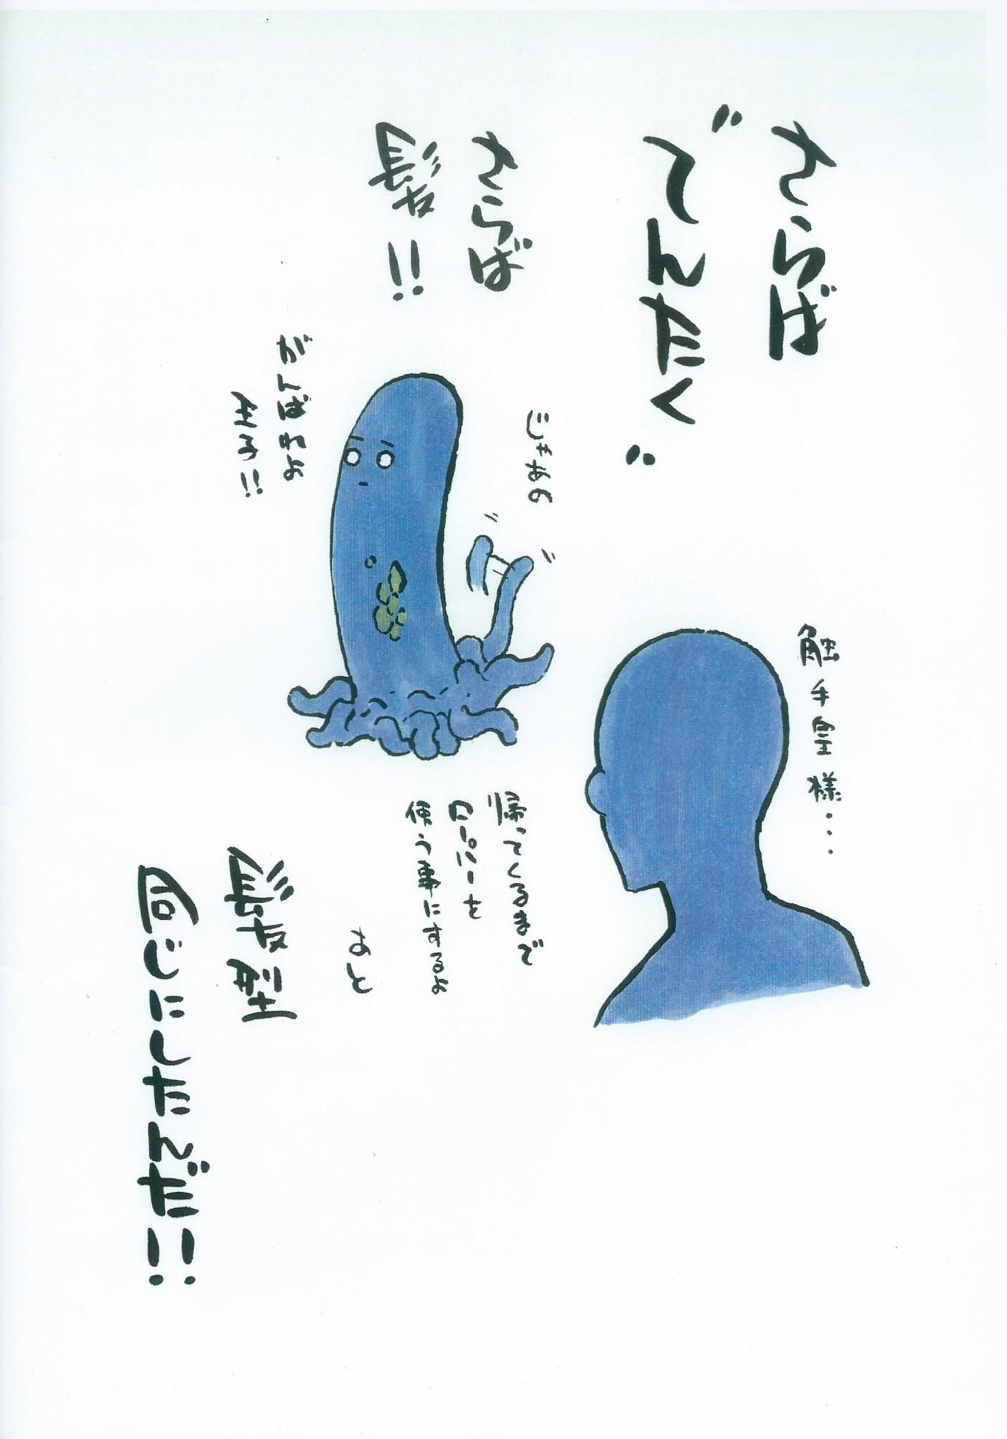 さらば
"でんたく"
さらば
髪!!
じゃあの
がんばれよ
王子!!
触手皇様・・・
帰ってくるまで
ローパーを
使う事にするよ
あと
髪型
同じにしたんだ!!